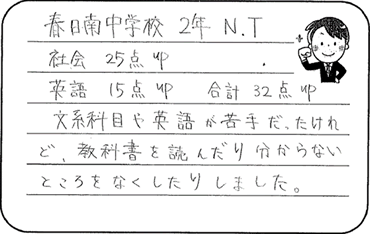 春日南中学校 2年 N.T
社会 25点up
英語 15点up 合計32点up
文系科目や英語が苦手だったけれ
ど、教科書を読んだり分からない
ところをなくしたりしました。